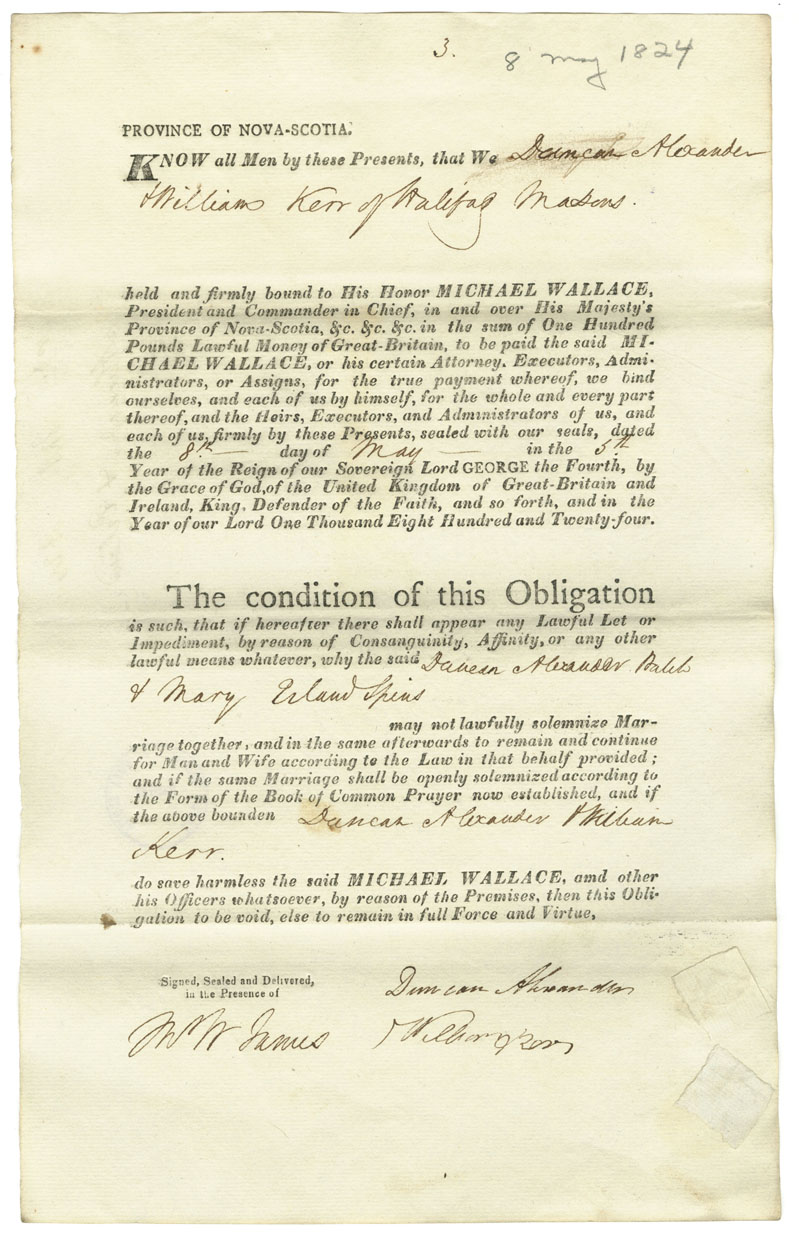 3.
8 may 1824
PROVINCE OF NOVA-SCOTIA.
KNOW all Men by these Presents, that We Duncan Alexander
& William Kerr of Halifax Masons.
held and firmly bound to His Honor MICHAEL WALLACE,
President and Commander in Chief, in and over His Majesty's
Province of Nova-Scotia, &c. &c. &c. in the sum of One Hundred
Pounds Lawful Money of Great-Britain, to be paid the said MI-
CHAEL WALLACE, or his certain Attorney. Executors, Admi-
nistrators, or Assigns, for the true payment whereof, we bind
ourselves, and each of us by himself, for the whole and every part
thereof, and the Heirs, Executors, and Administrators of us, and
each of us, firmly by these Presents, sealed with our seals, dated
the 8th — day of May — in the 5th
Year of the Reign of our Sovereign Lord GEORGE the Fourth, by
the Grace of God, of the United Kingdom of Great-Britain and
Ireland, King, Defender of the Faith, and so forth, and in the
Year of our Lord One Thousand Eight Hundred and Twenty-four.
The condition of this Obligation
is such, that if hereafter there shall appear any Lawful Let or
Impediment, by reason of Consanguinity, Affinity, or any other
lawful means whatever, why the said Duncan Alexander
& Mary
may not lawfully solemnize Mar-
riage together, and in the same afterwards to remain and continue
for Man and Wife according to the Law in that behalf provided;
and if the same Marriage shall be openly solemnized according to
the Form of the Book of Common Prayer now established, and if
the above bounden Duncan Alexander & William
Kerr.
do save harmless the said MICHAEL WALLACE, amd other
his Officers whatsoever, by reason of the Premises, then this Obli-
gation to be void, else to remain in full Force and Virtue,
Signed, Sealed and Delivered,
in the Presence of
Duncan Alexander
Wm W James
William Kerr